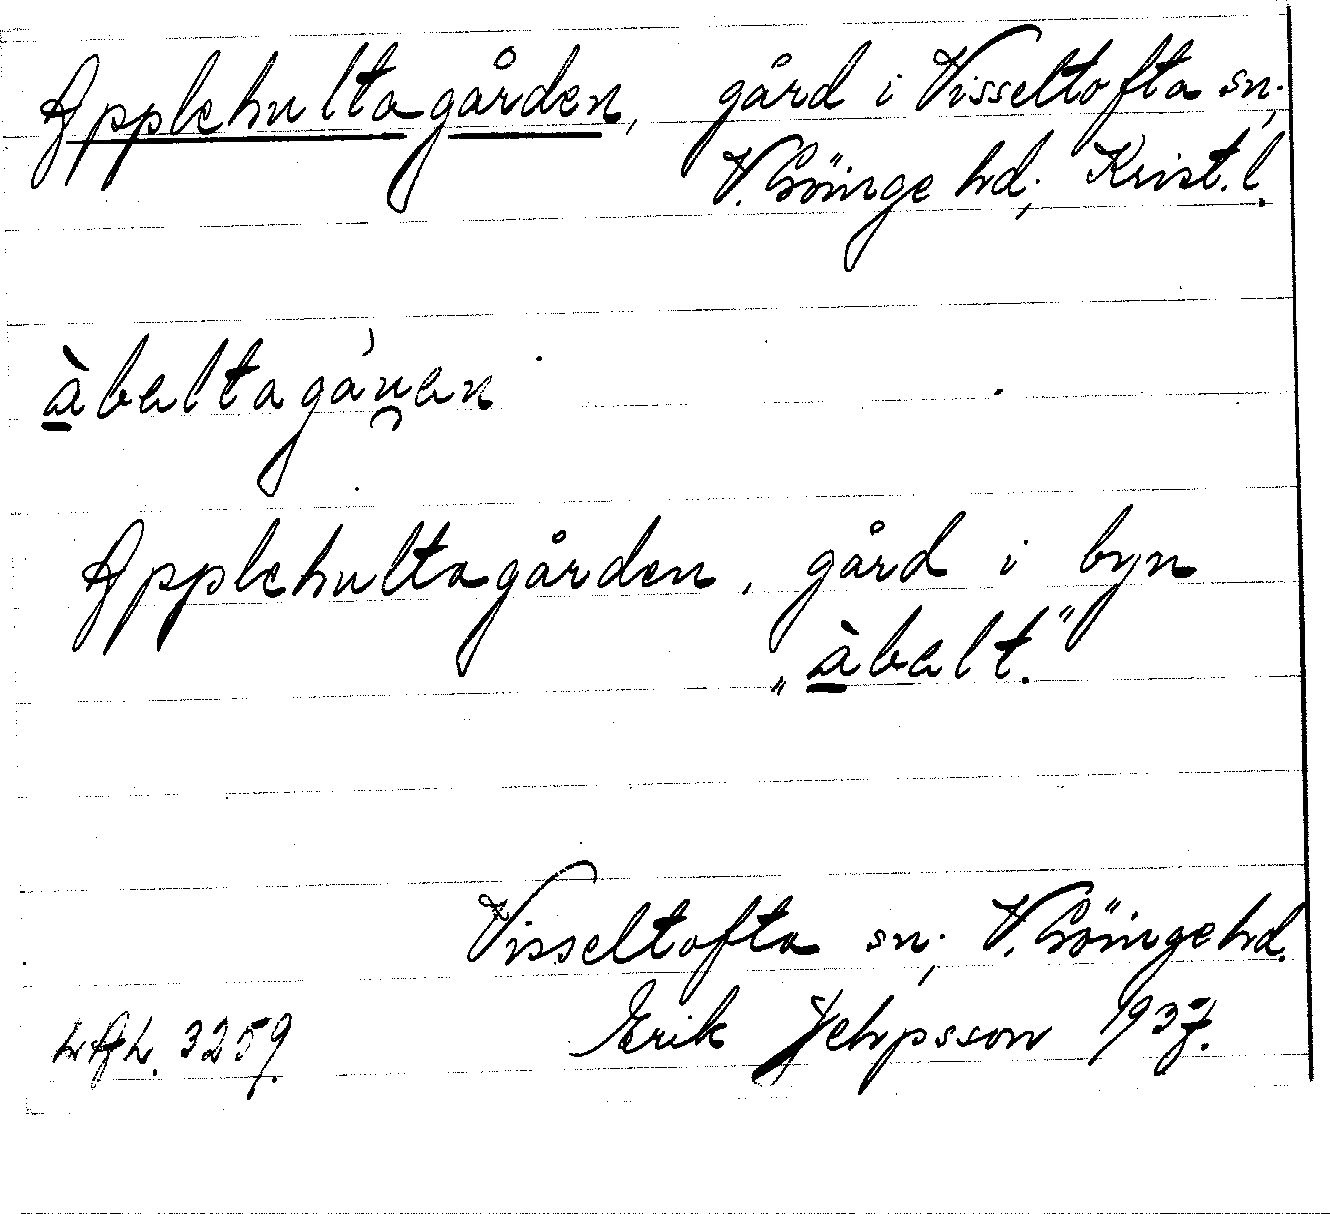 Applehultagården, gård i Visseltofta sn,
V. Göinge hd, Krist. l.
àbeltagánen
Applehultagården, gård i byn
„àbelt."
Visseltofta sn, V. Göinge hd.
3259. Erik Jehpsson 1937.